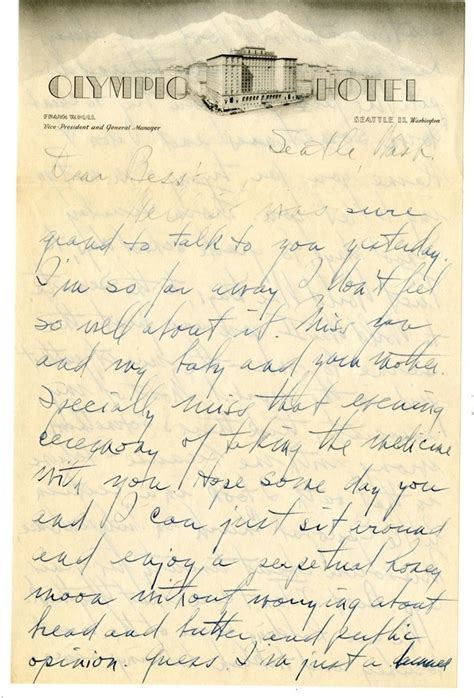 OLYMPIC HOTEL
FRANK W. HULL
Vice-President and General Manager
SEATTLE 11, Washington
Seattle, Wash
Dear Bess:
was sure
grand to talk to you yesterday.
I'm so far away I don't feel
so well about it. Miss you
and my baby and your mother.
Specially miss that evening
ceremony of taking the medicine
with you. Hope some day you
and I can just sit around
and enjoy a perpetual honey
moon without worrying about
bread and butter and public
opinion. Guess I'm just a